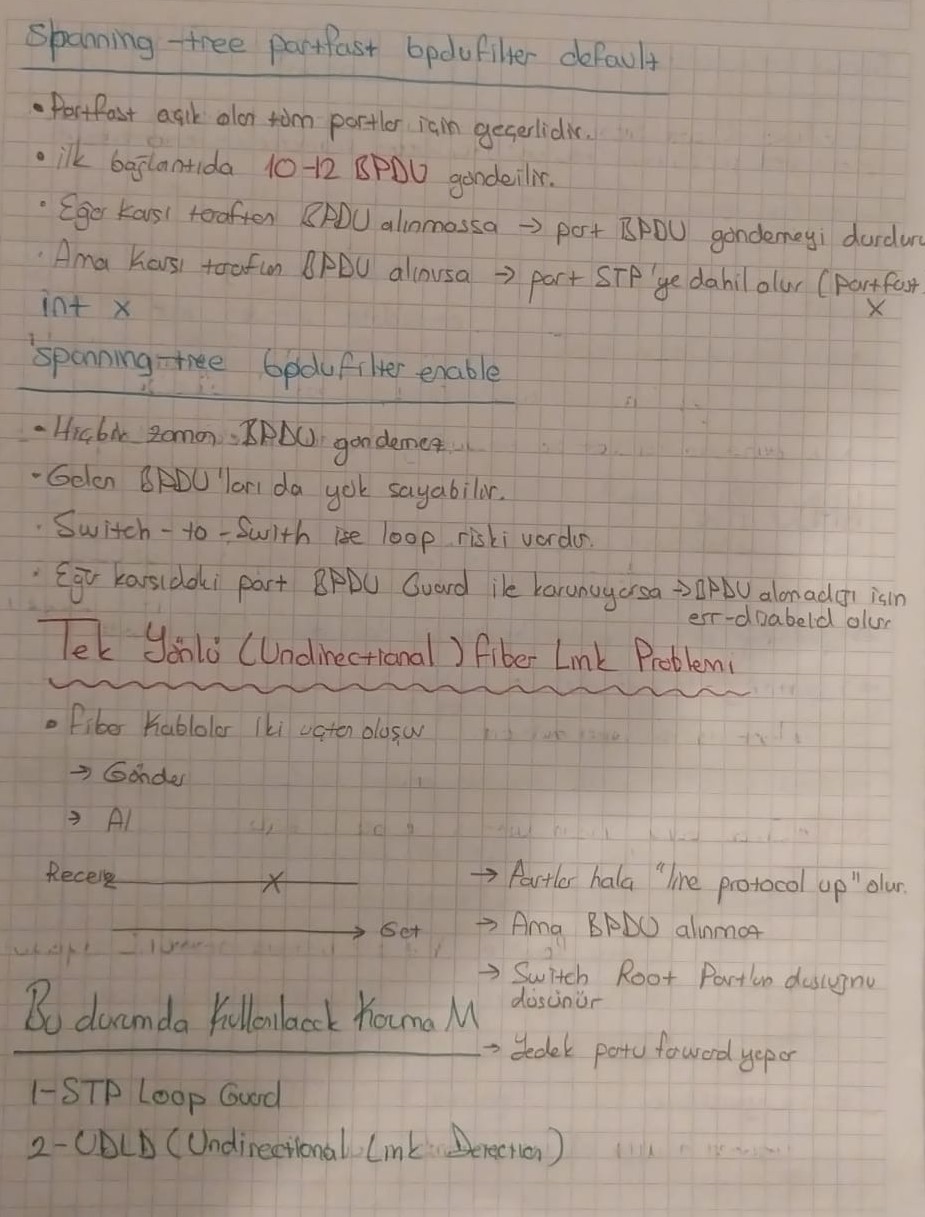 Spanning-tree portfast bpdufilter default
• Portfast açık olan tüm portlar için geçerlidir.
• ilk bağlantıda 10-12 BPDU gönderilir.
• Eğer karşı taraftan BPDU alınmassa → port BPDU göndemeyi durduru
• Ama karşı taraftan BPDU alınırsa → port STP'ye dahil olur (portfast
X
int x
spanning-tree bpdufilter enable
- Hiçbir zaman BPDU göndemez
- Gelen BPDU'ları da yok sayabilir.
• Switch-to-Swith ise loop riski vardır.
• Eğer karsıdaki port BPDU Guard ile korunuyorsa → BPDU alamadığı için
err-disabeld olur
Tek Yönlü (Undirectional) fiber Link Problemi
• Fiber kablolar iki uçtan oluşur
→ Gönder
→ Al
Receive X
→ Get
→ Portlar hala "line protocol up" olur.
→ Ama BPDU alınmaz
→ Switch Root Port'un
düşünür
→ Yedek portu forward yapar
Bu durumda Kullanılacak Koruma M
1-STP Loop Guard
2-UDLD (Undirectional Link Derection)